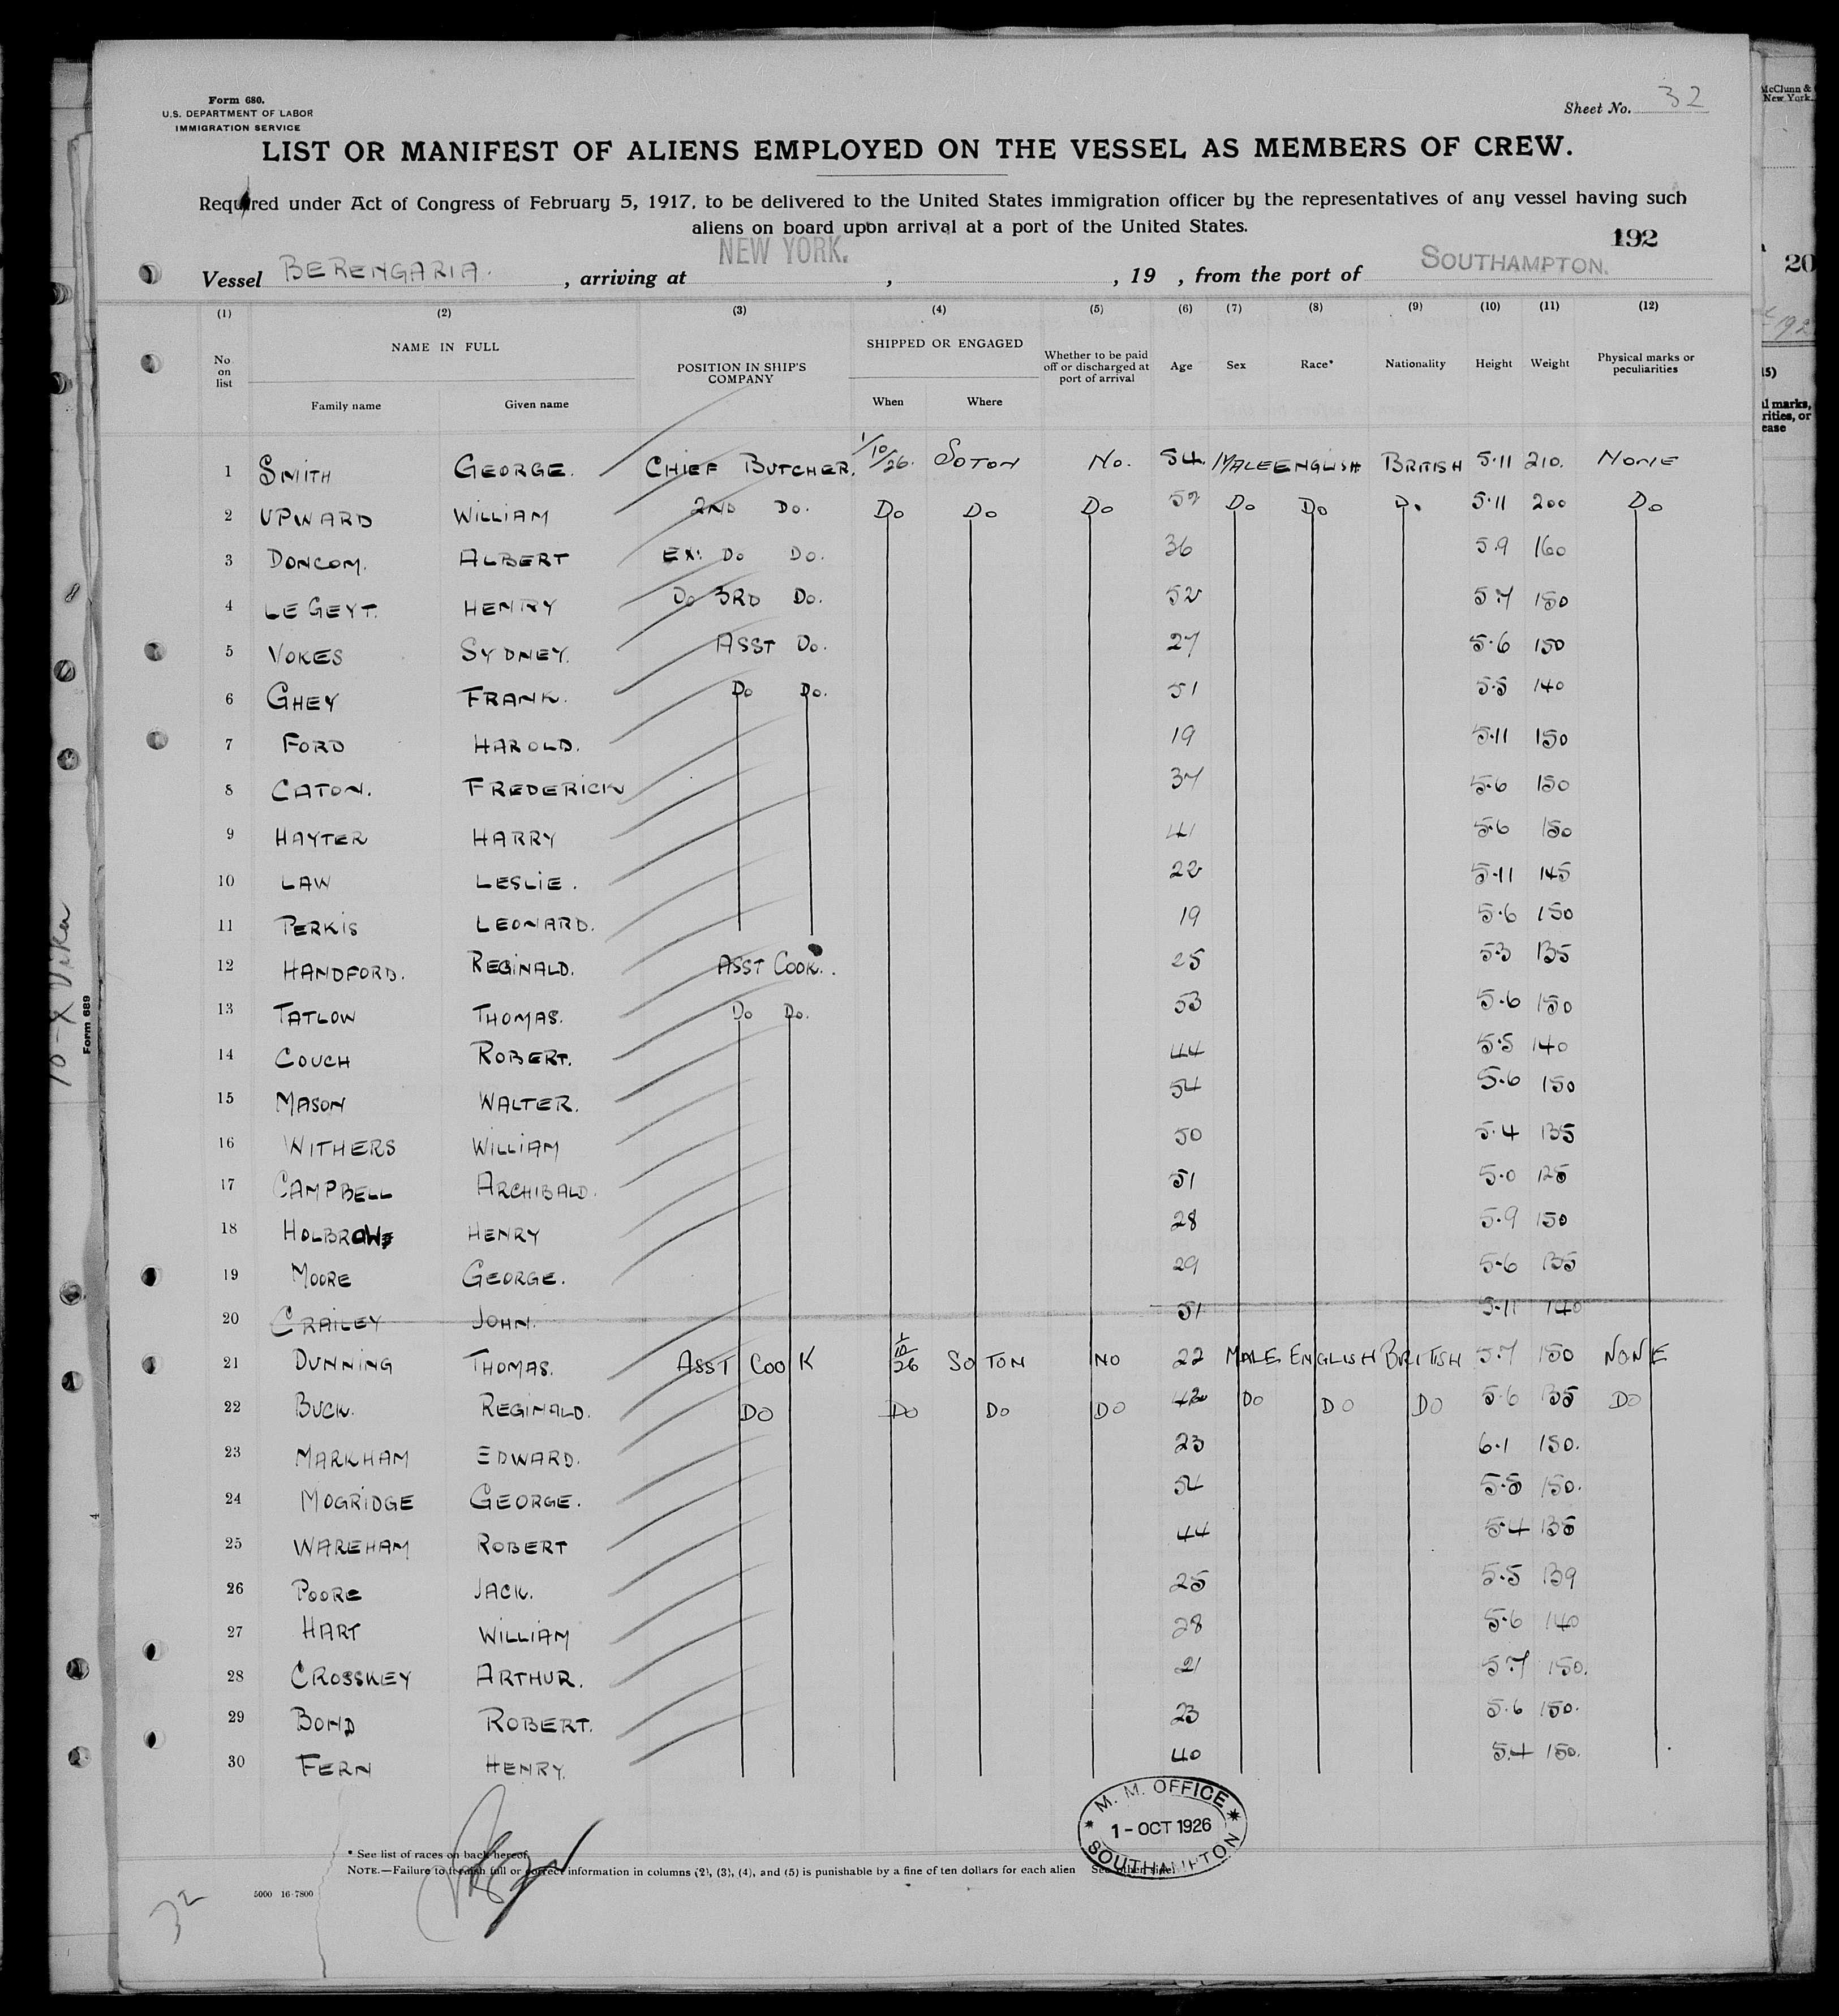 Form 680.
U.S. DEPARTMENT OF LABOR
IMMIGRATION SERVICE
Sheet No. 32
LIST OR MANIFEST OF ALIENS EMPLOYED ON THE VESSEL AS MEMBERS OF CREW.
Required under Act of Congress of February 5, 1917, to be delivered to the United States immigration officer by the representatives of any vessel having such
aliens on board upon arrival at a port of the United States.
192
Vessel BERENGARIA. , arriving at NEW YORK. , , 19 , from the port of SOUTHAMPTON.
(1) (2) (3) (4) (5) (6) (7) (8) (9) (10) (11) (12)
No. on list NAME IN FULL Family name Given name POSITION IN SHIP'S COMPANY SHIPPED OR ENGAGED When Where Whether to be paid off or discharged at port of arrival Age Sex Race* Nationality Height Weight Physical marks or peculiarities
1 SMITH GEORGE. CHIEF BUTCHER. 1/10/26. SOTON No. 54 MALE ENGLISH BRITISH 5.11 210. NONE
2 UPWARD WILLIAM 2ND Do. Do Do Do 52 Do Do Do 5.11 200 Do
3 DONCOM. ALBERT EX: Do Do. 36 5.9 160
4 LE GEYT. HENRY Do 3RD Do. 52 5.7 150
5 VOKES SYDNEY. ASST Do. 27 5.6 150
6 GHEY FRANK. Do Do. 51 5.5 140
7 FORD HAROLD. 19 5.11 150
8 CATON. FREDERICK 37 5.6 150
9 HAYTER HARRY 41 5.6 150
10 LAW LESLIE. 22 5.11 145
11 PERKIS LEONARD. 19 5.6 150
12 HANDFORD. REGINALD. ASST COOK. 25 5.3 135
13 TATLOW THOMAS. Do Do. 53 5.6 150
14 COUCH ROBERT. 44 5.5 140
15 MASON WALTER. 54 5.6 150
16 WITHERS WILLIAM 50 5.4 135
17 CAMPBELL ARCHIBALD. 51 5.0 125
18 HENRY 28 5.9 150
19 MOORE GEORGE. 29 5.6 135
20 CRAILEY JOHN. 51 5.11 140
21 DUNNING THOMAS. ASST COOK 1/10/26 SOTON NO 22 MALE ENGLISH BRITISH 5.7 150 NONE
22 BUCK. REGINALD. DO DO DO DO 42 DO DO DO 5.6 135 DO
23 MARKHAM EDWARD. 23 6.1 150.
24 MOGRIDGE GEORGE. 54 5.8 150.
25 WAREHAM ROBERT 44 5.4 135
26 POORE JACK. 25 5.5 139
27 HART WILLIAM 28 5.6 140
28 CROSSKEY ARTHUR. 21 5.7 150.
29 BOND ROBERT. 23 5.6 150.
30 FERN HENRY. 40 5.4 150.
M. M. OFFICE
1 - OCT 1926
SOUTHAMPTON
* See list of races on back hereof.
NOTE.—Failure to furnish full or correct information in columns (2), (3), (4), and (5) is punishable by a fine of ten dollars for each alien See other side.
5000 16-7800
32
Form 689
4
McClunn &
New York.
20
192
15)
al marks,
rities, or
ease